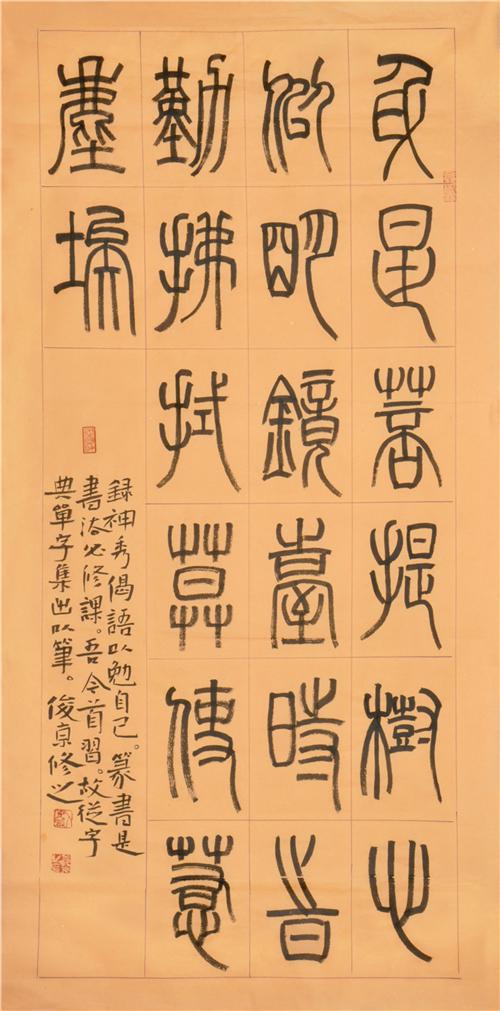 身是菩提樹心
似明鏡臺時旹
勤拂拭莫使惹
塵埃
録神秀偈語以勉自己。篆書是
書法必修課。吾今首習。故從字
典單字集出以筆。俊京修之